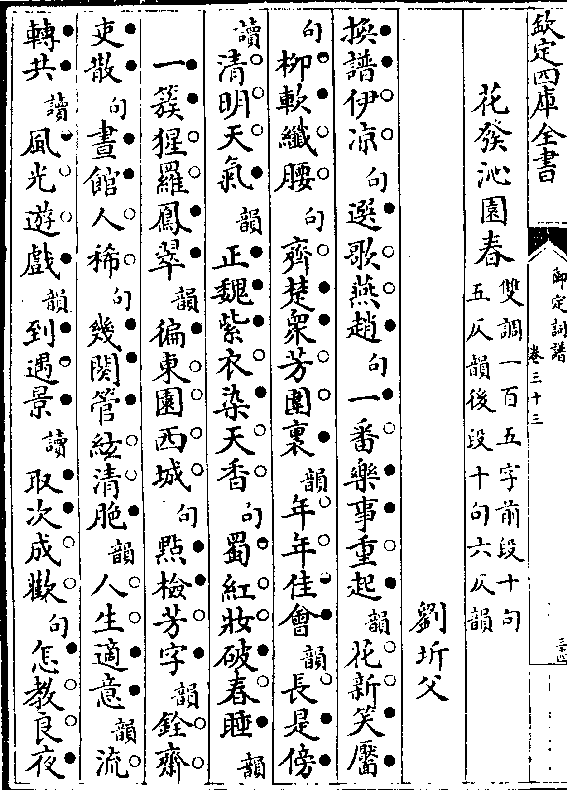 欽定四庫全書
御定詞譜
卷三十三
三四
花發沁園春
雙調一百五字前段十句
五仄韻後段十句六仄韻
劉圻父
換譜伊凉句選歌燕趙句一番樂事重起韻花新笑靨
句柳軟纖腰句齊楚衆芳圍裏韻年年佳會韻長是傍
讀清明天氣韻正魏紫衣染天香句蜀紅妝破春睡韻
一簇猩羅鳳翠韻徧東園西城句點檢芳字韻銓齋
吏散句晝館人稀句幾闋管絃清脆韻人生適意韻流
轉共讀風光遊戲韻到遇景讀取次成歡句怎教良夜